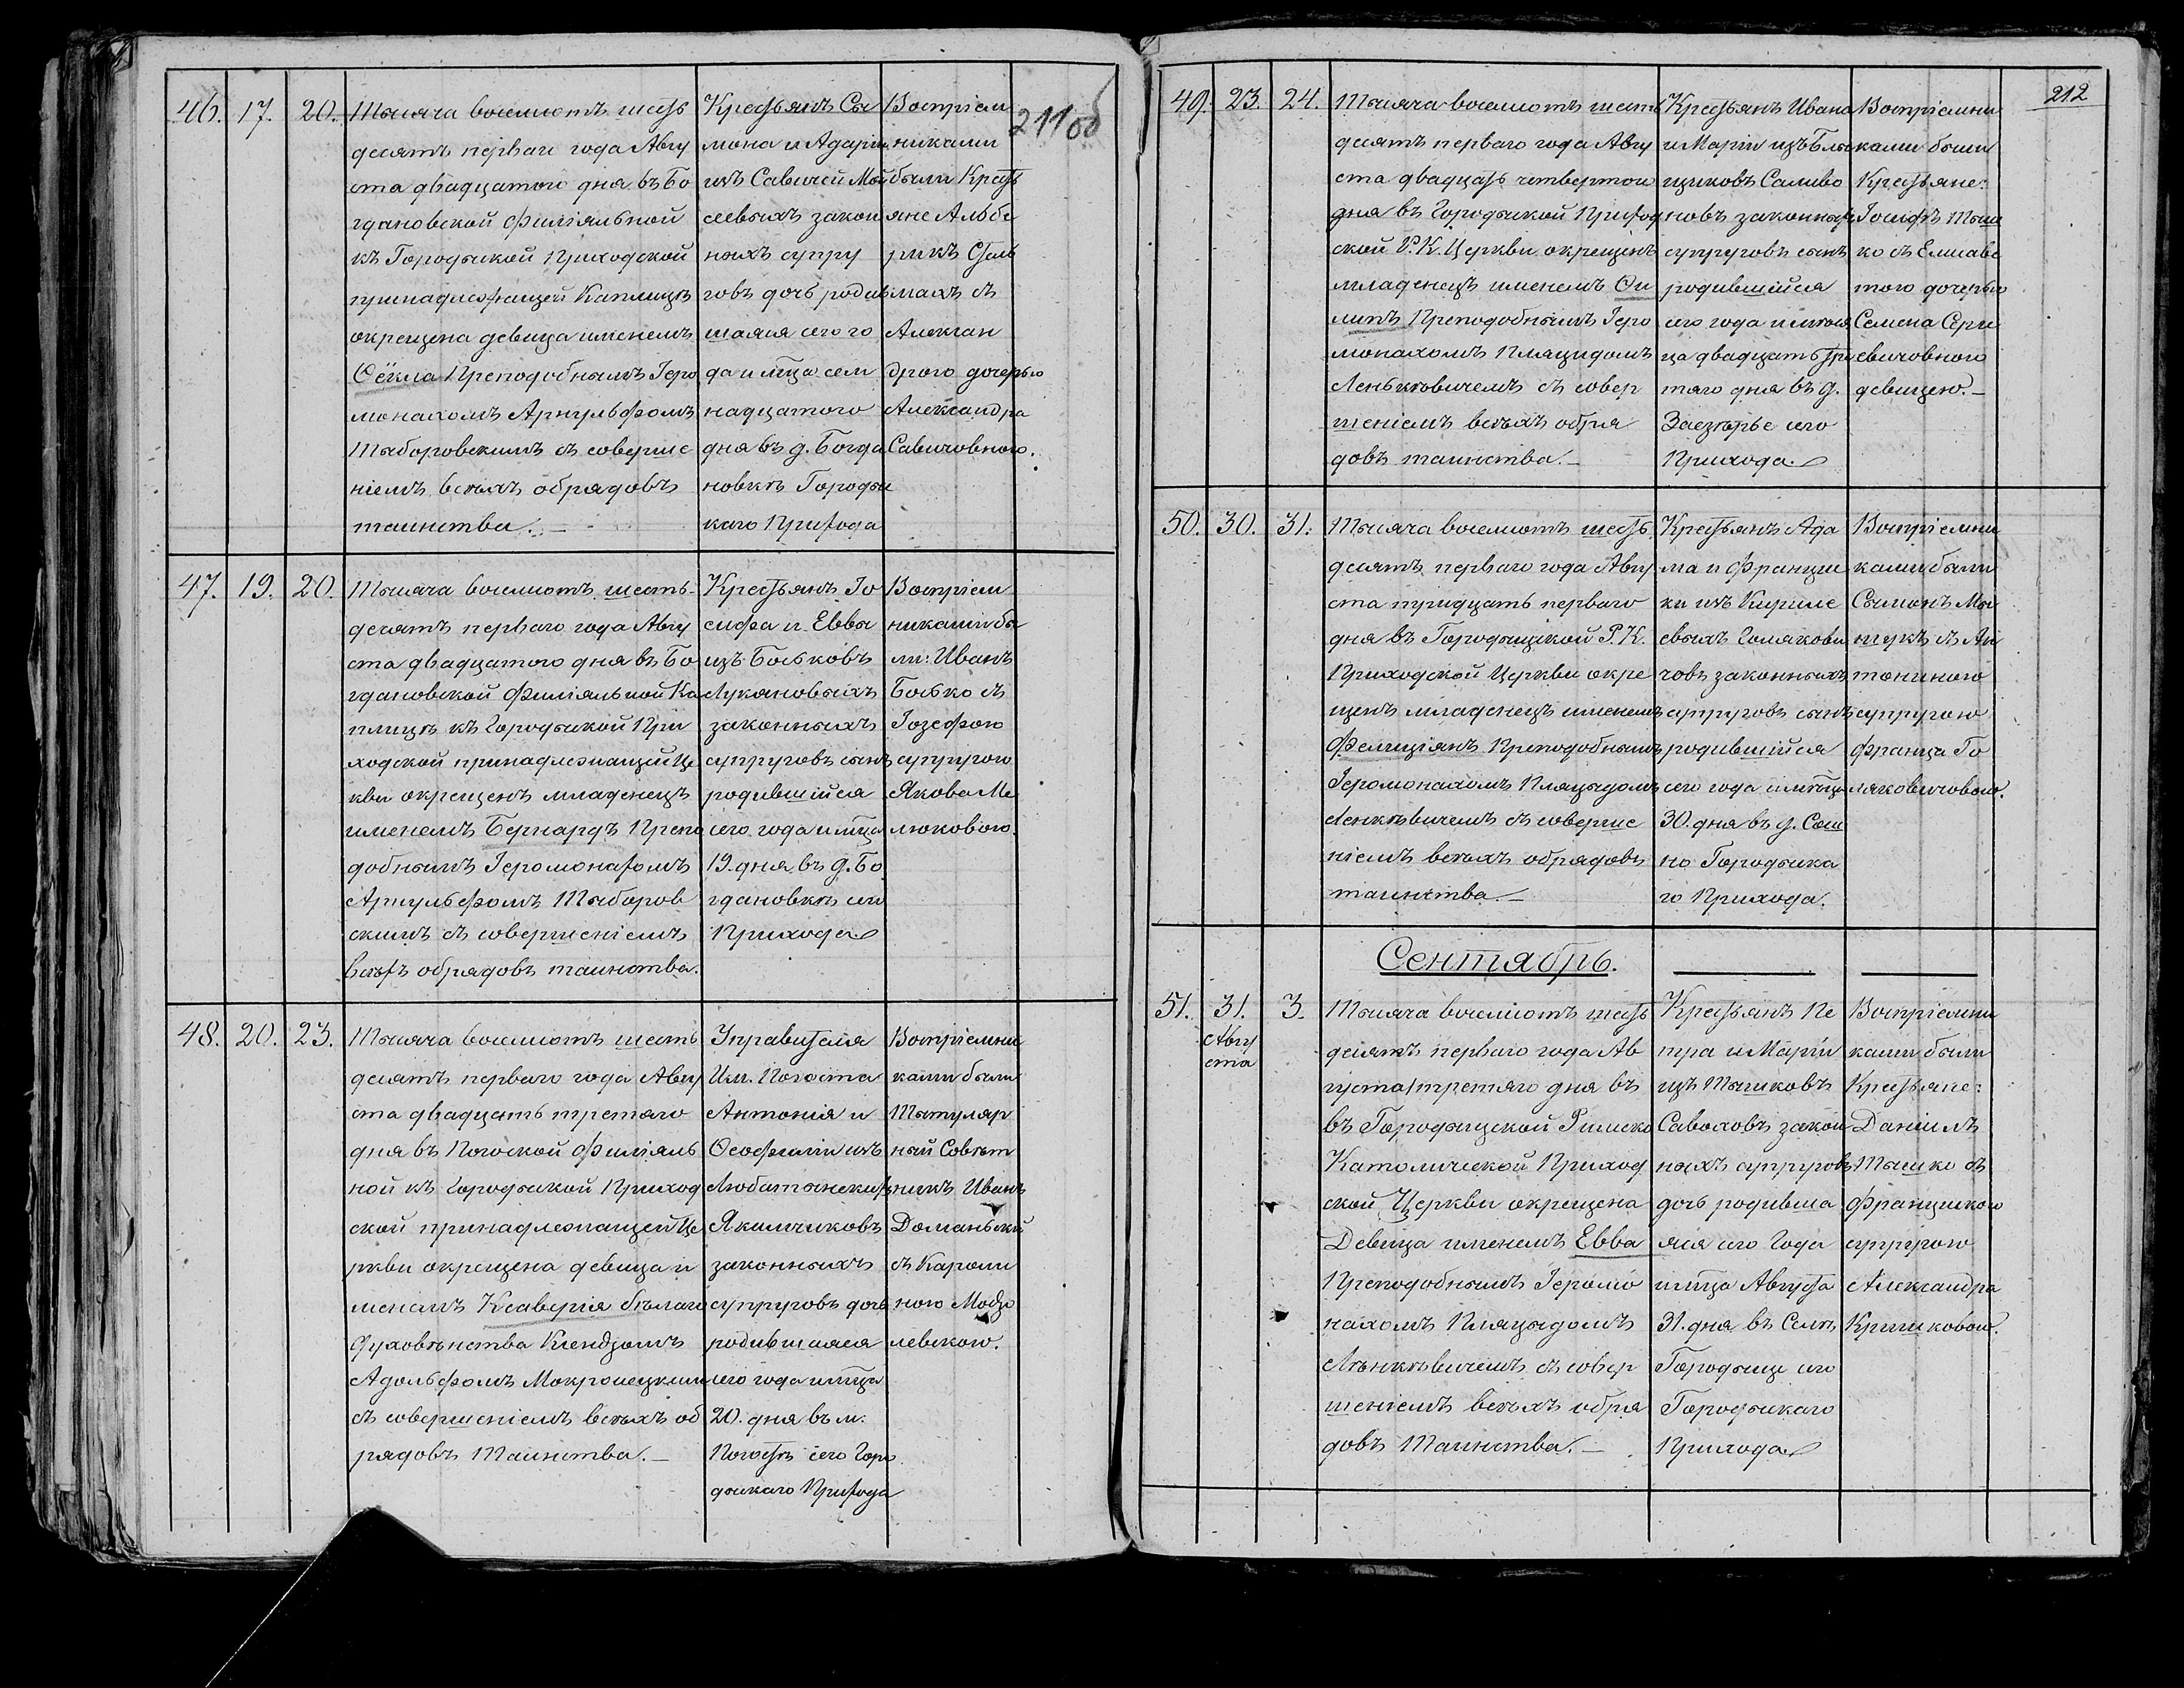 211 об
46. 17. 20. Тысяча восемьсотъ шесть
десятъ перваго года Авгу
ста двадцатого дня въ Бо
гдановской филіяльной
къ Городыской Приходской
принадлежащей Каплицѣ
окрещена девица именемъ
Ѳёкла Преподобнымъ Іеро
монахомъ Арнульфомъ
Таборовскимъ съ соверше
ніемъ всѣхъ обрядовъ
таинства. —
Крестьянъ Сы
мона и Адаріи
изъ Савичей Мой
сеевыхъ закон
ныхъ супру
говъ дочь родив
шаяся сего го
да и м̃ца сем
надцатого
дня въ д. Богда
новкѣ Городы
каго Прихода
Воспріем
никами
были Кресть
яне Альбе
рикъ Стель
махъ съ
Алексан
дрого дочерью
Александра
Савичовною.
47. 19. 20. Тысяча восемьсотъ шесть-
десятъ перваго года Авгу
ста двадцатого дня въ Бо
гдановской Филіяльной Ка
плицѣ къ Городыской При
ходской принадлежащей Це
кви окрещенъ младенецъ
именемъ Бернардъ Препо
добнымъ Іеромонахомъ
Арнульфомъ Таборов
скимъ съ совершеніемъ
всѣхъ обрядовъ таинства.
Крестьянъ Іо
сифа и Еввы
изъ Боськовъ
Лукановыхъ
законныхъ
супруговъ сынъ
родившійся
сего года и м̃ца
19. дня въ д. Бо
гдановкѣ сего
Прихода
Воспріем
никами бы
ли: Иванъ
Босько съ
Іозефою
супругою
Якова Ме
люковою.
48. 20. 23. Тысяча восемьсотъ шесть
десятъ перваго года Авгу
ста двадцать третяго
дня въ Погоской Филіяль
ной къ Городыской Приход
ской принадлежащей Це
ркви окрещена девица и
менемъ Ксаверія бѣлаго
духовѣнства Ксендзомъ
Адольфомъ Мокронецкимъ
съ совершеніемъ всѣхъ об
рядовъ Таинства. —
Управителя
Им. Погоста
Антонія и
Ѳеофиліи изъ
Любатынскихъ
Якимчиковъ
законныхъ
супруговъ дочь
родившаяся
сего года и м̃ца
20. дня въ м.
Погостѣ сего Горо
дыкаго Прихода
Воспріемни
ками были
Тытуляр
ный Совѣт
никъ Иванъ
Доманьский
съ Кароли
ною Модзо
левскою.
212
49. 23. 24. Тысяча восемьсотъ шесть
десятъ перваго года Авгу
ста двадцать четвертого
дня въ Городыской Приход
ской Р. К. Церкви окрещенъ
младенецъ именемъ Фи
липъ Преподобнымъ Іеро
монахомъ Пляцидомъ
Ленькѣвичемъ съ совер
шеніемъ всѣхъ обря
довъ таинства. —
Крестьянъ Ивана
и Маріи изъ Блы
щиковъ Саливо
новъ законныхъ
супруговъ сынъ
родившійся
сего года и мѣся
ца двадцать тре
тяго дня въ д.
Заезѣрье сего
Прихода.
Воспріемни
ками были
Крестьяне:
Іосифъ Тыш
ко съ Елисаве
тою дочерью
Семена Серге
евичовною
девицею. —
50. 30. 31. Тысяча восемьсотъ шесть
десятъ перваго года Авгу
ста тридцать перваго
дня въ Городыщской Р. К.
Приходской Церкви окре
щенъ младенецъ именемъ
Фелиціянъ Преподобнымъ
Іеромонахомъ Пляцыдомъ
Ленкѣвичемъ съ соверше
ніемъ всѣхъ обрядовъ
таинства. —
Крестьянъ Ада
ма и Францис
ки изъ Кириле
евыхъ Голякови
човъ законныхъ
супруговъ сынъ
родившійся
сего года и мѣсца
30. дня въ д. Сош
но Городыска
го Прихода.
Воспріемни
ками были
Сымонъ Мы
шукъ съ Ан
тониною
супругою
Франца Го
ляковичовою.
Сентябрь.
51. 31. 3. Тысяча восемьсотъ шесть
Авгу
ста
десятъ перваго года Ав
густа третяго дня въ
въ Городыщской Римско
Католической Приход
ской Церкви окрещена
Девица именемъ Евва
Преподобнымъ Іеромо
нахомъ Пляцыдомъ
Лѣнкѣвичемъ съ совер
шеніемъ всѣхъ обря
довъ Таинства. —
Крестьянъ Пе
тра и Маріи
изъ Тышковъ
Савоховъ закон
ныхъ супруговъ
дочь родивша
яся сего Года
и м̃ца Августа
31. дня въ Селѣ
Городыще сего
Городыскаго
Прихода.
Воспріемни
ками были
Крестьяне:
Даніилъ
Тышко съ
Францишкою
супругою
Александра
Кришковою.